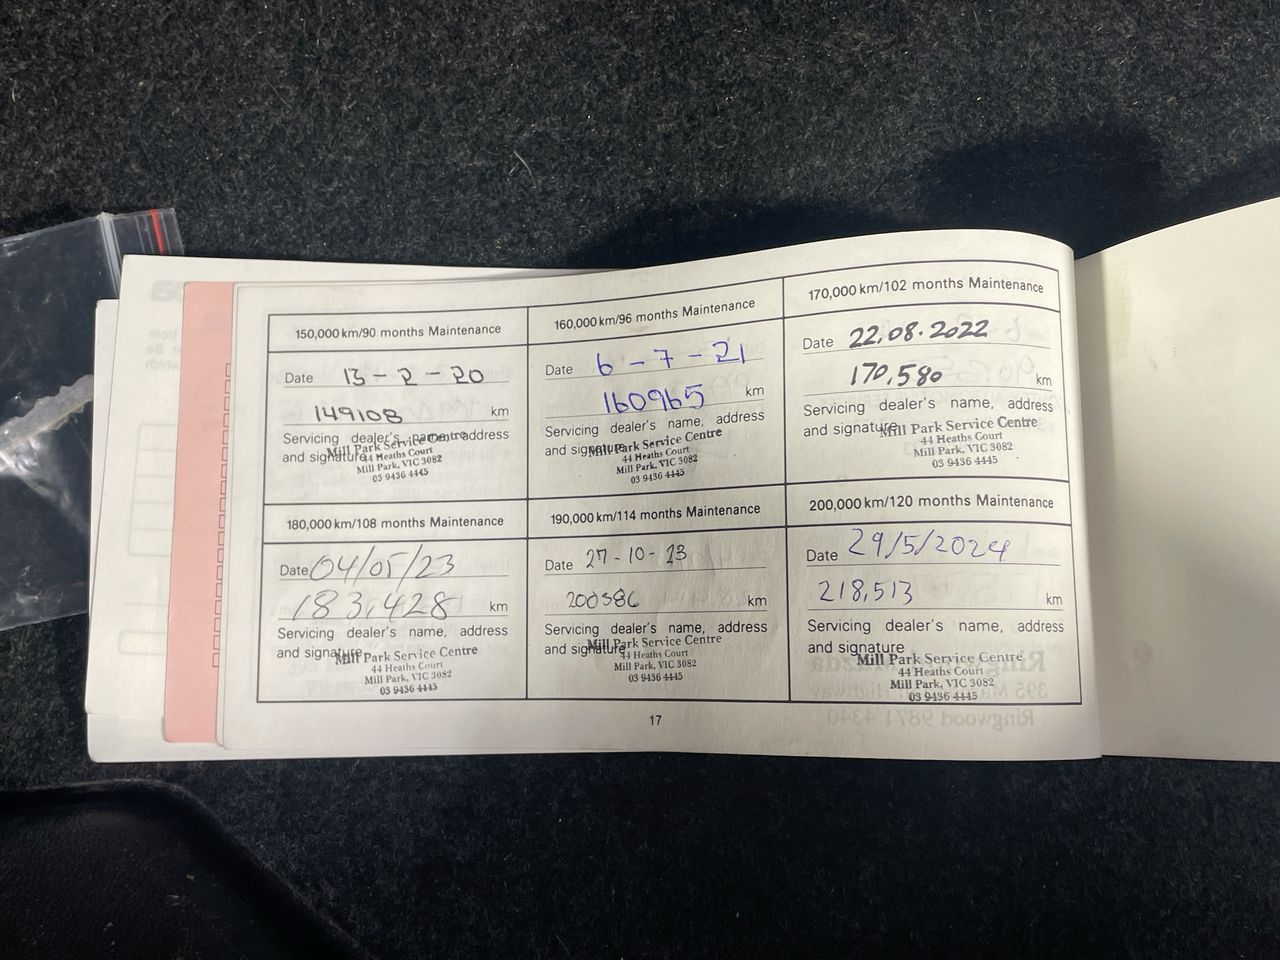 150,000 km/90 months Maintenance
Date 13-2-20
149108 km
Servicing dealer's name, address
and signature
Mill Park Service Centre
44 Heaths Court
Mill Park, VIC 3082
03 9436 4445
160,000 km/96 months Maintenance
Date 6-7-21
160965 km
Servicing dealer's name, address
and signature
Mill Park Service Centre
44 Heaths Court
Mill Park, VIC 3082
03 9436 4445
170,000 km/102 months Maintenance
Date 22.08.2022
170,580 km
Servicing dealer's name, address
and signature
Mill Park Service Centre
44 Heaths Court
Mill Park, VIC 3082
03 9436 4445
180,000 km/108 months Maintenance
Date 04/05/23
183,428 km
Servicing dealer's name, address
and signature
Mill Park Service Centre
44 Heaths Court
Mill Park, VIC 3082
03 9436 4445
190,000 km/114 months Maintenance
Date 27-10-23
200586 km
Servicing dealer's name, address
and signature
Mill Park Service Centre
44 Heaths Court
Mill Park, VIC 3082
03 9436 4445
200,000 km/120 months Maintenance
Date 29/5/2024
218,513 km
Servicing dealer's name, address
and signature
Mill Park Service Centre
44 Heaths Court
Mill Park, VIC 3082
03 9436 4445
17